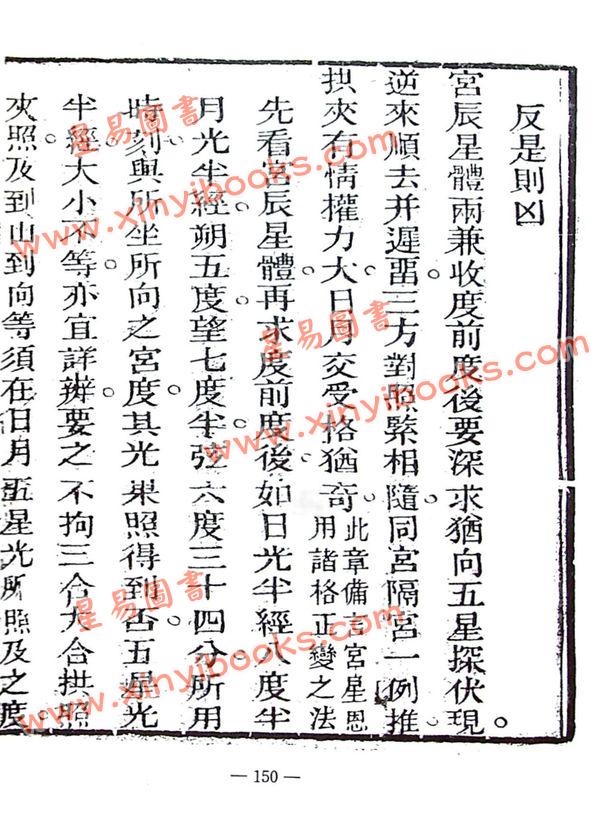 反是則凶
宮辰星體兩兼收度前度後要深求猶向五星探伏現。
逆來順去并遲畱三方對照緊相隨同宮隔宮一例推
拱夾有情權力大日月交受格猶奇此章備言宮星恩用諸格正變之法
先看宮辰星體再求度前度後如日光半經八度半
月光半經朔五度望七度半弦六度三十四分所用
時刻與所坐所向之宮度其光果照得到否五星光
半經大小不等亦宜詳辨要之不拘三合六合拱照
夾照及到山到向等須在日月五星光所照及之度
— 150 —
星易圖書
www.xinyibooks.com
星易圖書
www.xinyibooks.com
星易圖書
www.xinyibooks.com